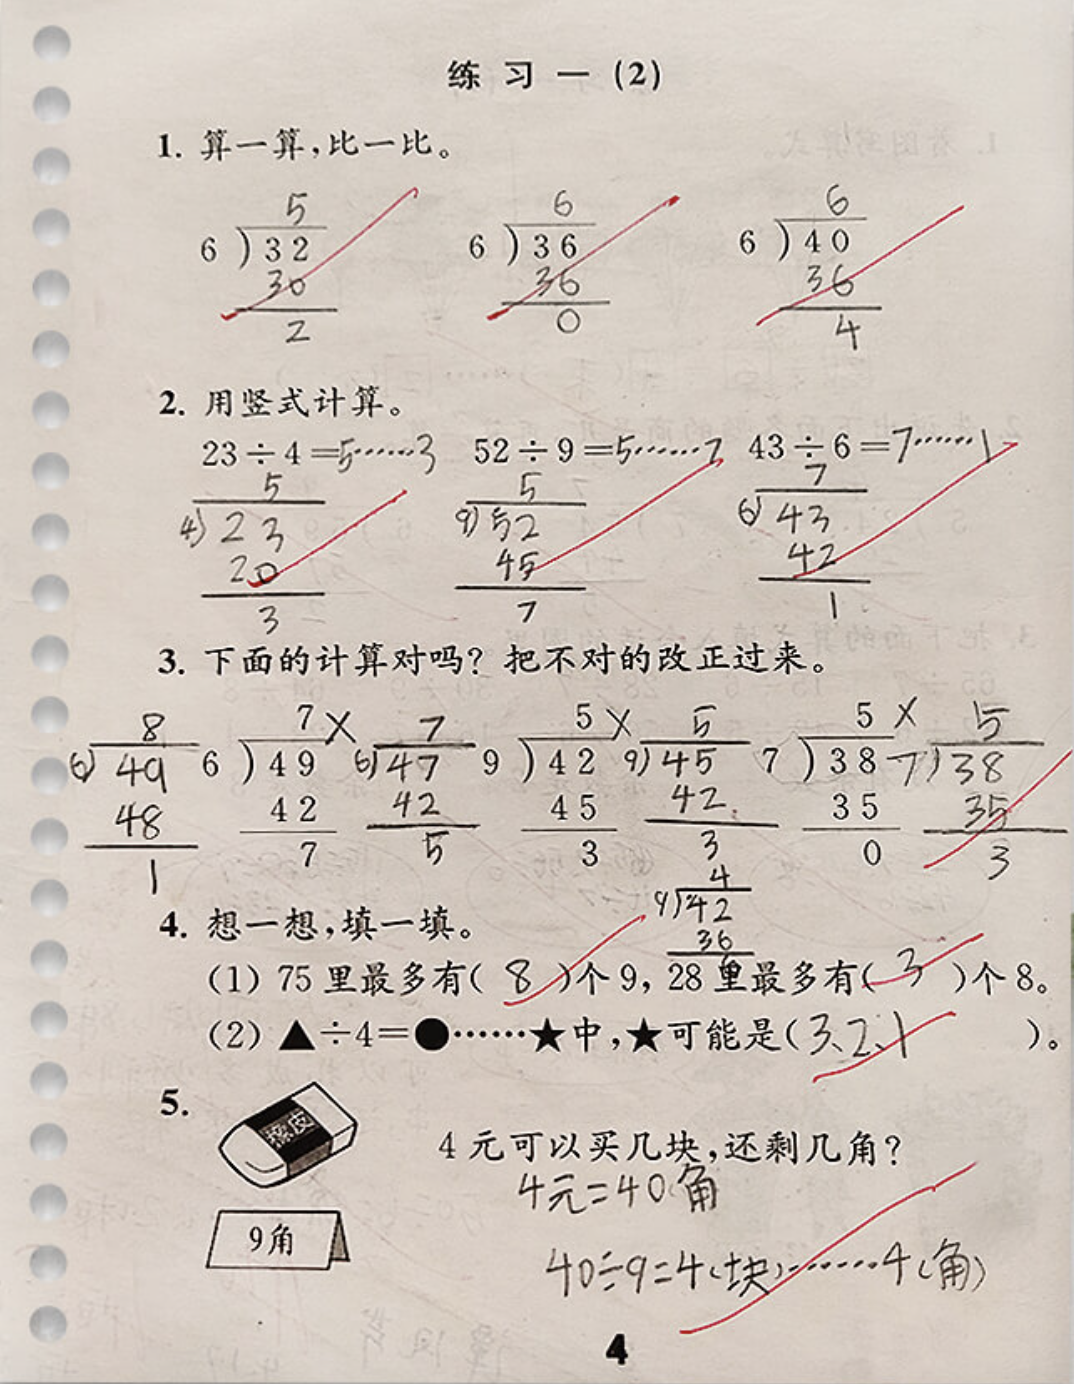 练习一(2)
1. 算一算,比一比。
5 6 6
6)32 6)36 6)40
30 36 36
2 0 4
2. 用竖式计算。
23÷4=5……3 52÷9=5……7 43÷6=7……1
5 5 7
4)23 9)52 6)43
20 45 42
3 7 1
3. 下面的计算对吗?把不对的改正过来。
8 7 × 7 5 × 5 5 × 5
6)49 6)49 6)47 9)42 9)45 7)38 7)38
48 42 42 45 42 35 35
1 7 5 3 3 0 3
4
9)42
36
6
4. 想一想,填一填。
(1) 75里最多有( 8 )个9,28里最多有( 3 )个8。
(2) ▲÷4=●……★中,★可能是(3、2、1 )。
5.
橡皮
4元可以买几块,还剩几角?
4元=40角
9角
40÷9=4(块)……4(角)
4